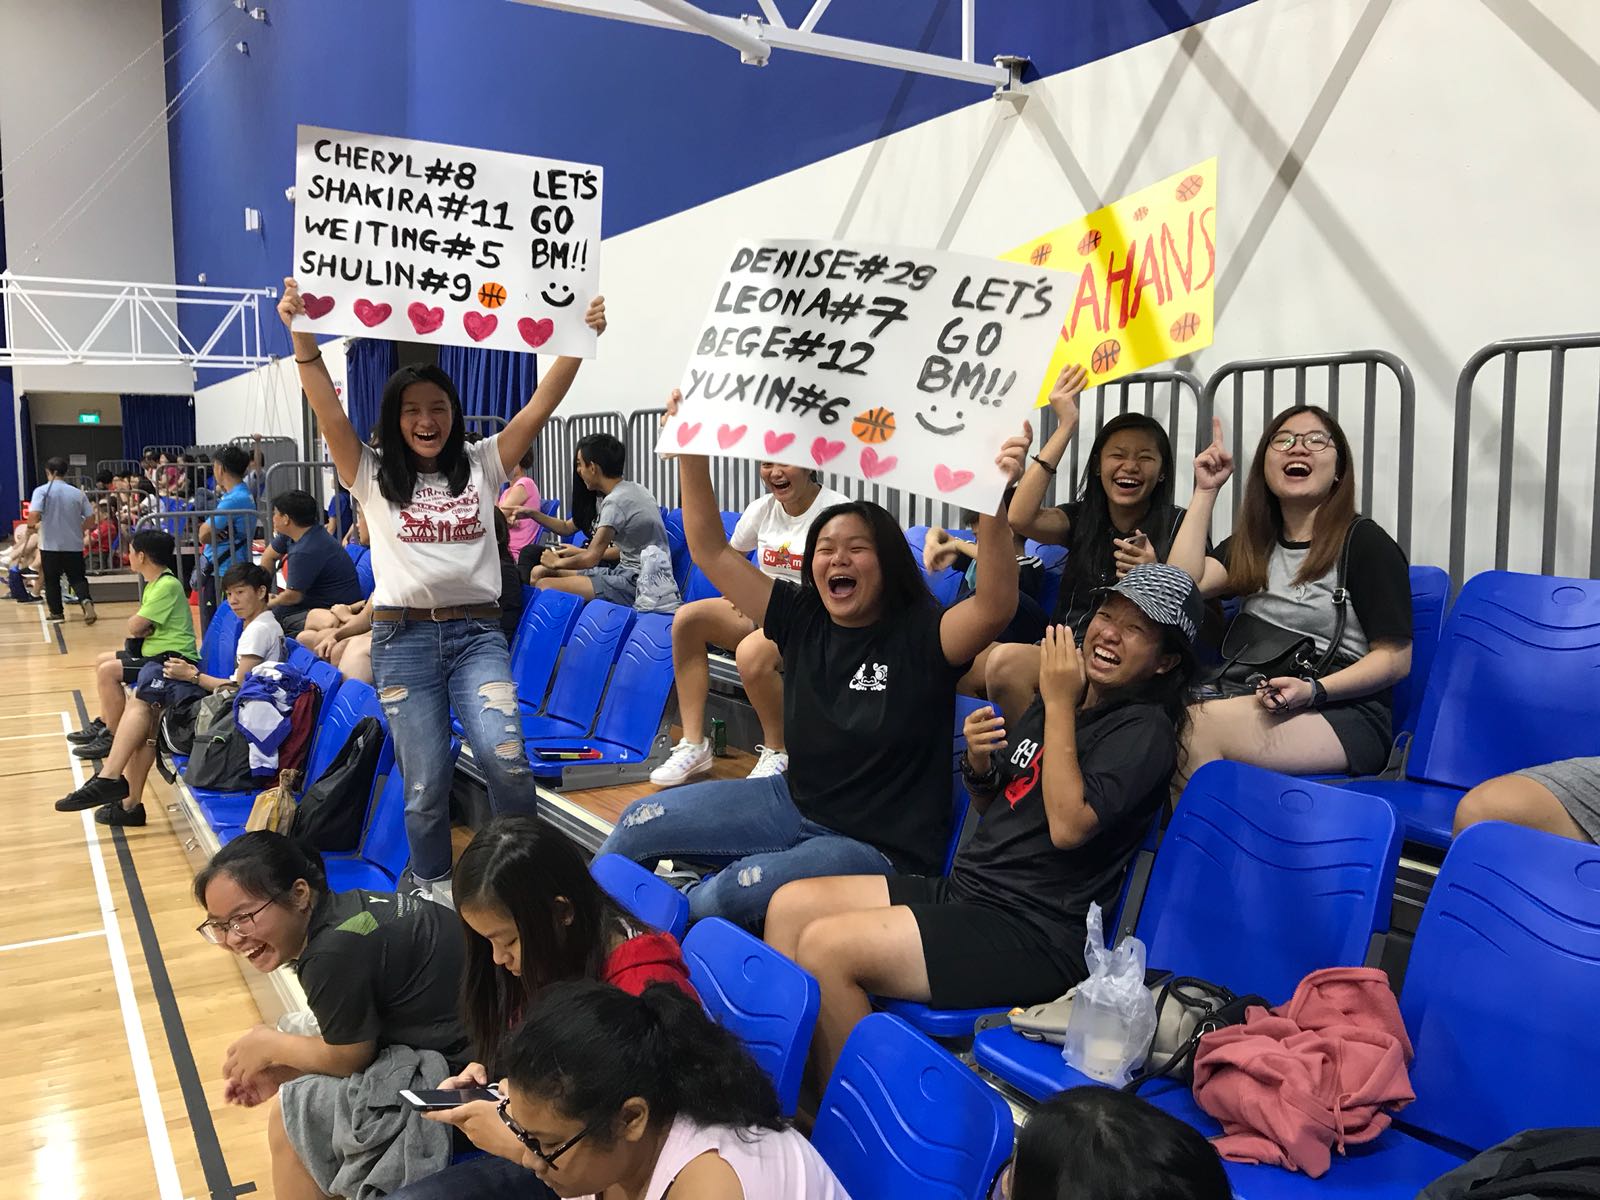 CHERYL#8
SHAKIRA#11
WEITING#5
SHULIN#9
LET'S
GO
BM!!
DENISE#29
LEONA#7
BEGE#12
YUXIN#6
LET'S
GO
BM!!
AHANS
Su
EXIT